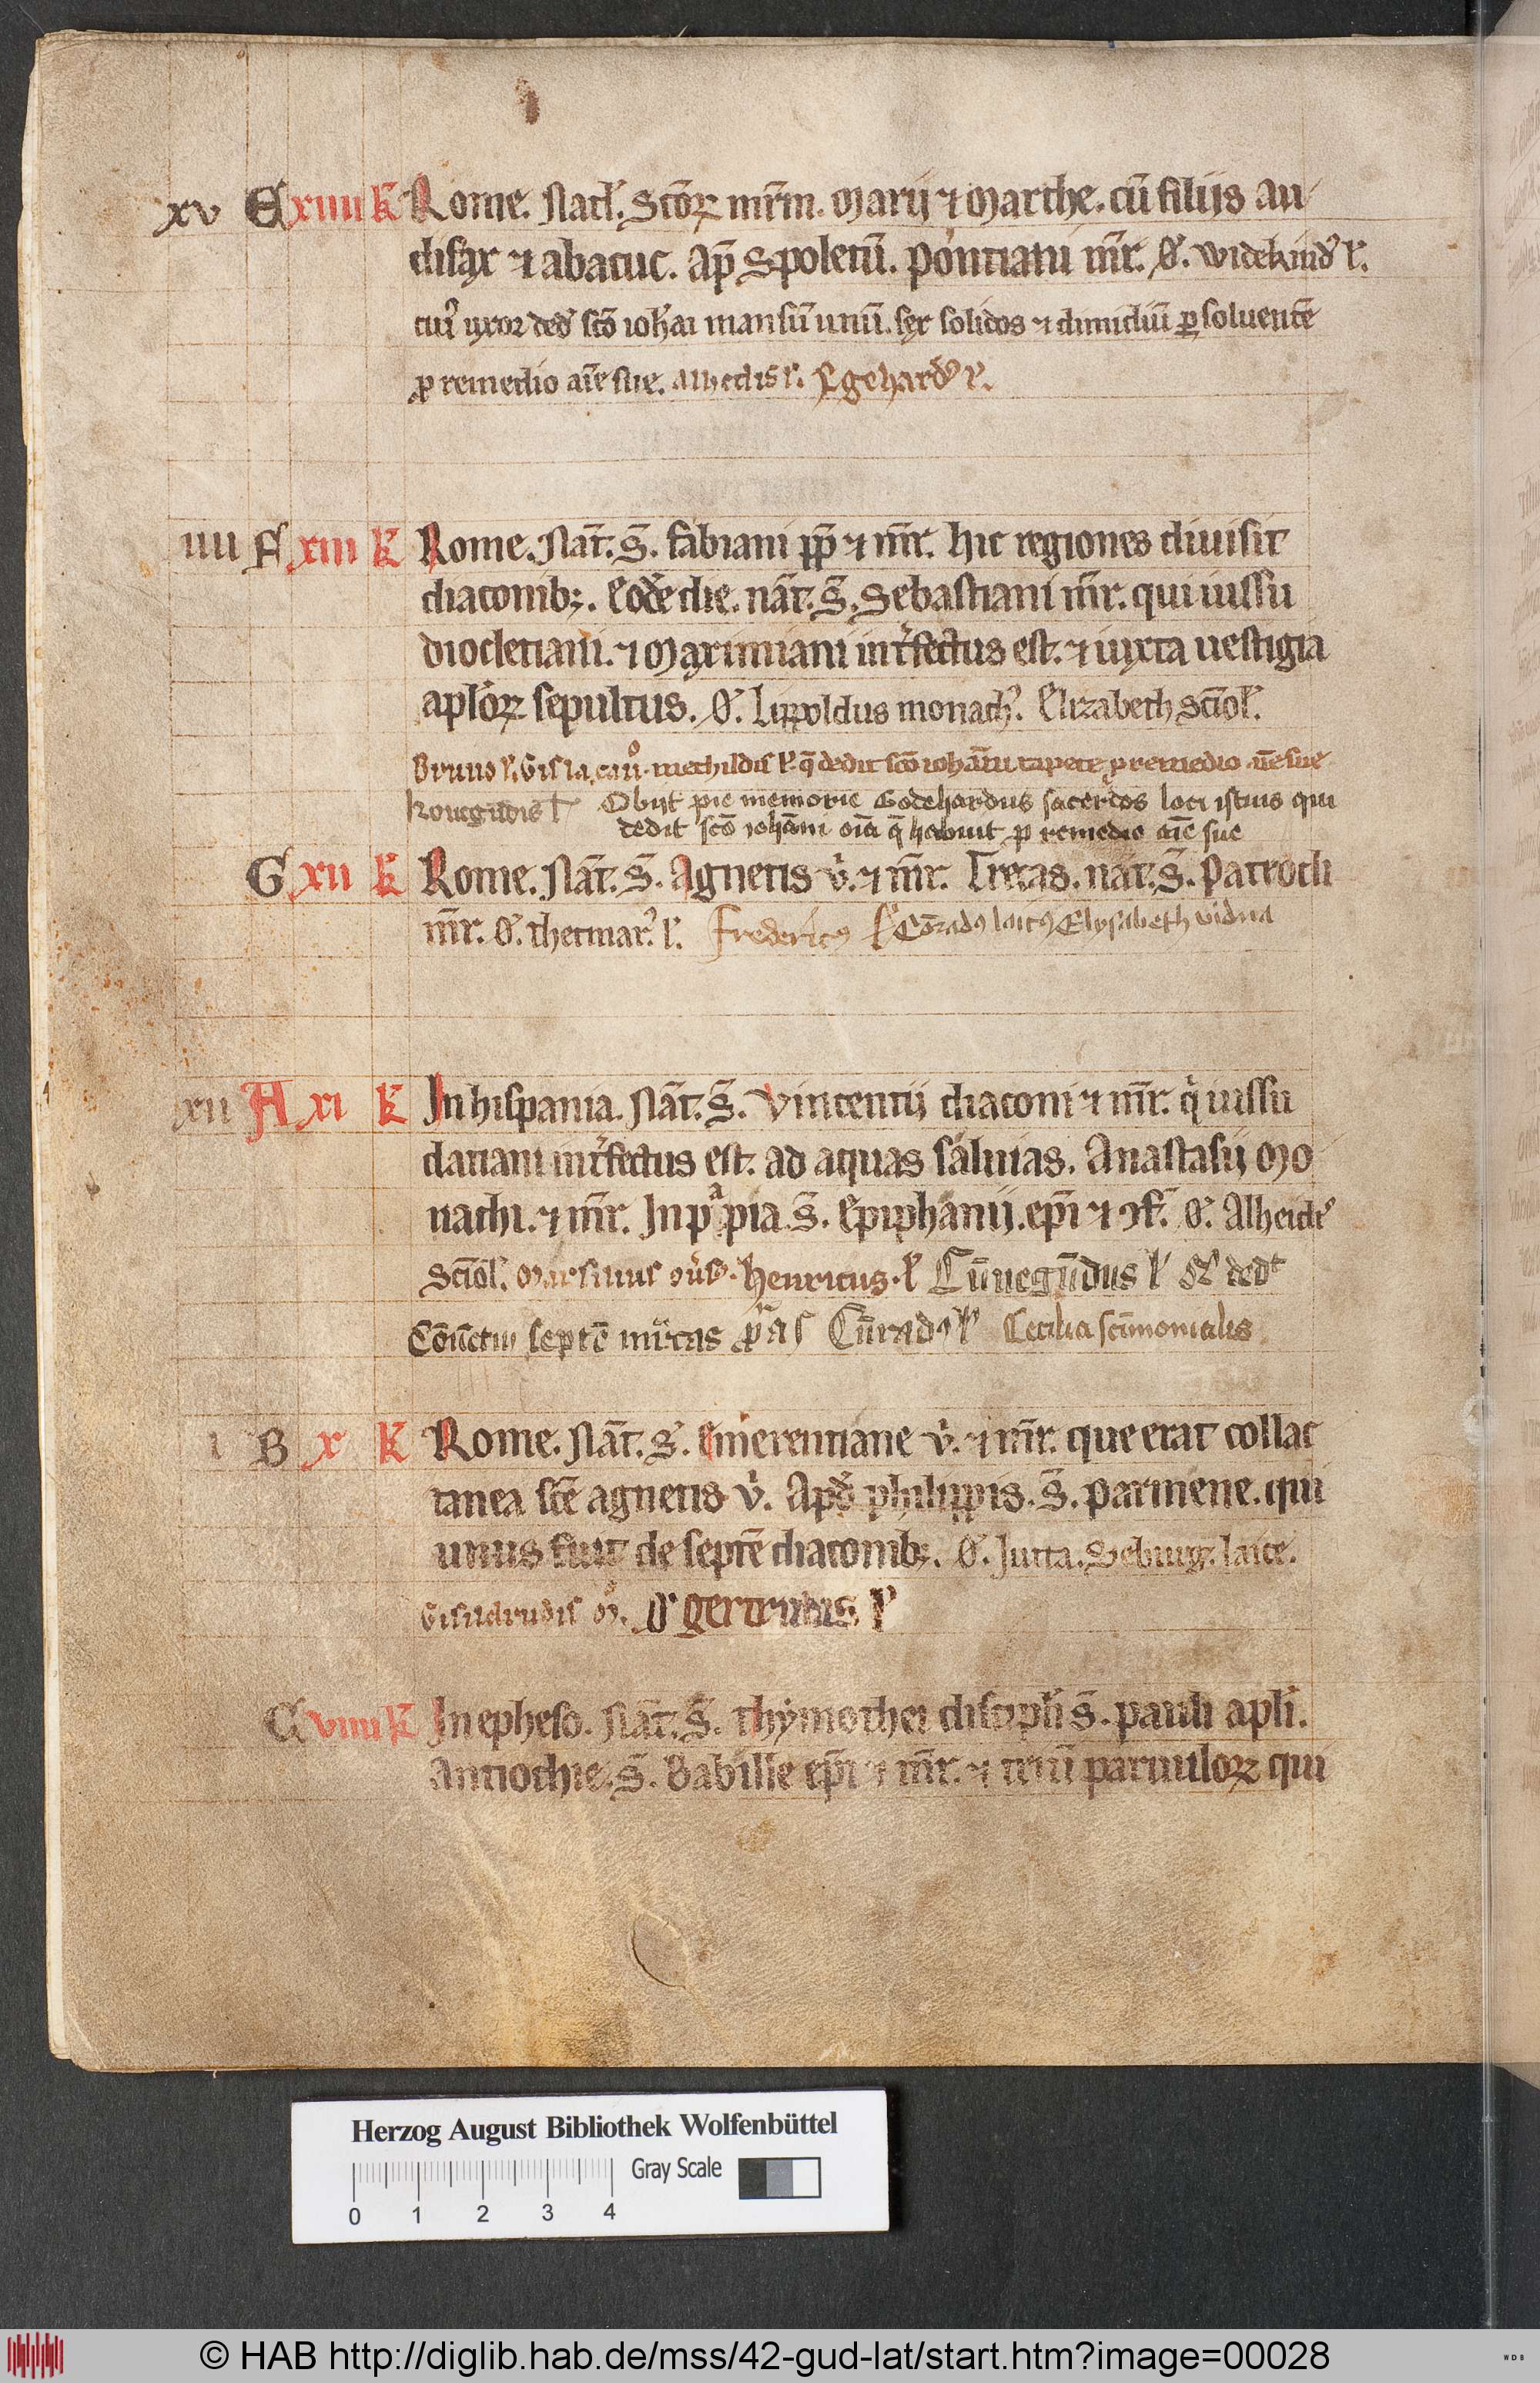 xv E xiiii k̅ Rome. Natl̓. Sc̅oꝝ mr̅m. Marij ⁊ Marthe. cu̅ filijs au
difax ⁊ abacuc. Ap̅ Spoletu̅. Pontiani m̅r. O̓. Widekind̓ l̓.
cui̓ uxor ded̓ sc̅o ioh̓ai mansu̅ unu̅. sex solidos ⁊ dimidiu̅ ꝑsoluente̅
ꝓ remedio ai̅e sue. Alhedis l̓. Egehard̓ l̓.
iiii F xiii k̅ Rome. Nat̅. S̅. fabiani pp̅ ⁊ m̅r. hic regiones diuisit
diaconib;. Eode̅ die. nat̅. S̅. Sebastiani m̅r. qui iussu
diocletiani. ⁊ Maximiani int̓fectus est. ⁊ iuxta uestigia
apl̓oꝝ sepultus. O̓. Lippoldus monach̓. Elizabeth Sc̅iol̓.
Bruno l̓. Gisla. can̓. mechildis l̓. q̅ dedit sc̅o ioha̅ni tapete ꝓ remedio a̅e sue
Obijt pie memorie Godehardus sacerdos loci istius qui
dedit sc̅o ioha̅ni oi̅a q̅ habuit ꝓ remedio ai̅e sue
G xii k̅ Rome. Nat̅. S̅. Agnetis v̓. ⁊ m̅r. Trecas. nat̅. S̅. Patrocli
m̅r. O̓. thetmar̓. l̓. Fredericꝰ l̓ Co̅radꝰ laicꝰ Elysabeth vidua
xii A xi k̅ In hispania. Nat̅. S̅. Vincentij diaconi ⁊ m̅r. q̓ iussu
datiani int̓fectus est. ad aquas saluias. Anastasij mo
nachi. ⁊ m̅r. In pᵃpia S̅. Epiphanij. ep̅i ⁊ ꝯf̅. O̓. Alheid̓
Sc̅iol̓. Marsilius Henricus. l̓ Cu̅negu̅dus l̓ ded̓t
Co̅ue̅tui septe̅ Cu̅radꝰ l̓ Cecilia sc̅imonialis
i B x k̅ Rome. Nat̅. S̓. Emerentiane v̓. ⁊ m̅r. que erat collac
tanea sc̅e agnetis v̓. Apd̓ philippis. S̅. Parmene. qui
unus fuit de septe̅ diaconib;. O̓. Jutta. Seburg. laice.
Gisildrudis o̓. O̓ gertrudis l̓
C viiii k̅ In epheso. Nat̅. S̅. thymothei discipl̓i S̅. pauli apl̓i.
Antiochie. S̅. Babille ep̅i ⁊ m̅r. ⁊ triu̅ paruuloꝝ qui
Herzog August Bibliothek Wolfenbüttel
Gray Scale
0 1 2 3 4
© HAB http://diglib.hab.de/mss/42-gud-lat/start.htm?image=00028
WDB